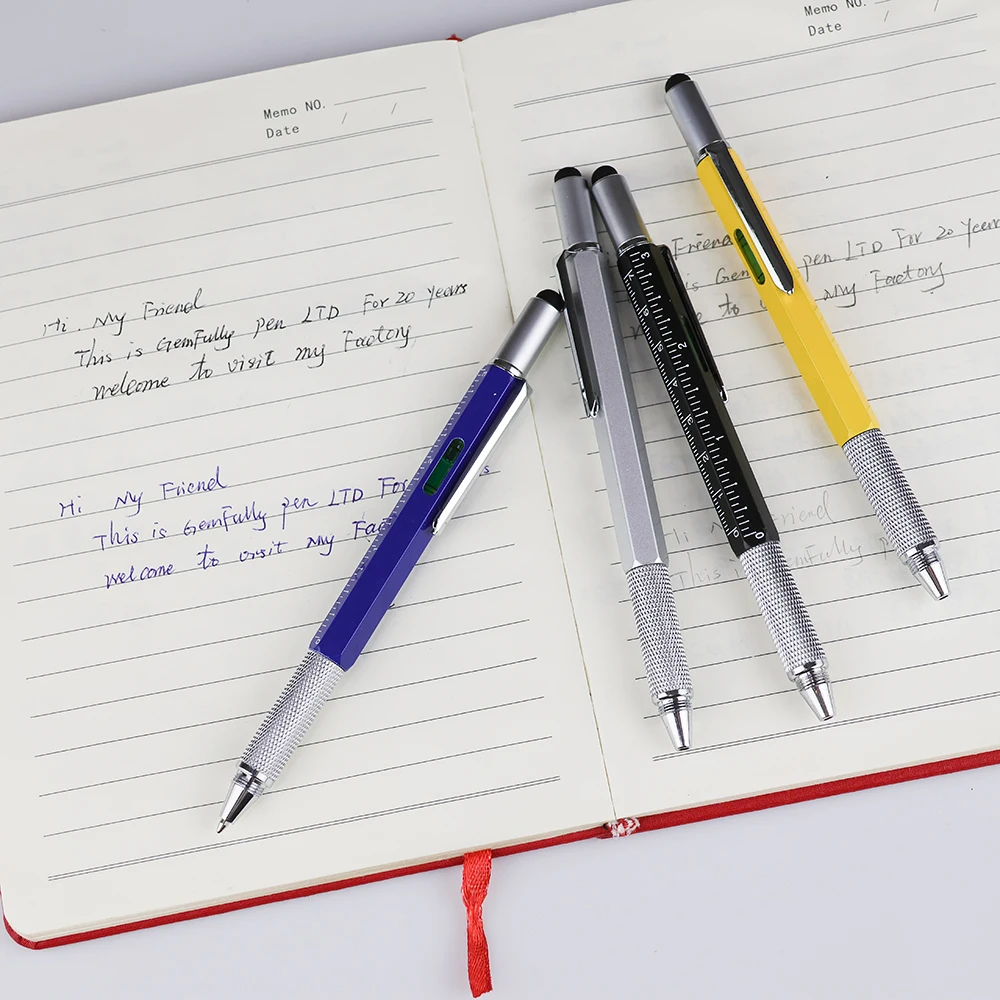 Memo NO.
Date / /
Hi. My Friend
This is Gemfully pen LTD For 20 years
welcome to visit my Factory
Hi My Friend
This is Gemfully pen LTD For
welcome to visit my
Memo NO.
Date / /
Friend
is pen LTD For 20 Years
to my Factory
Hi My Friend
This is Gemfully
3
2
0